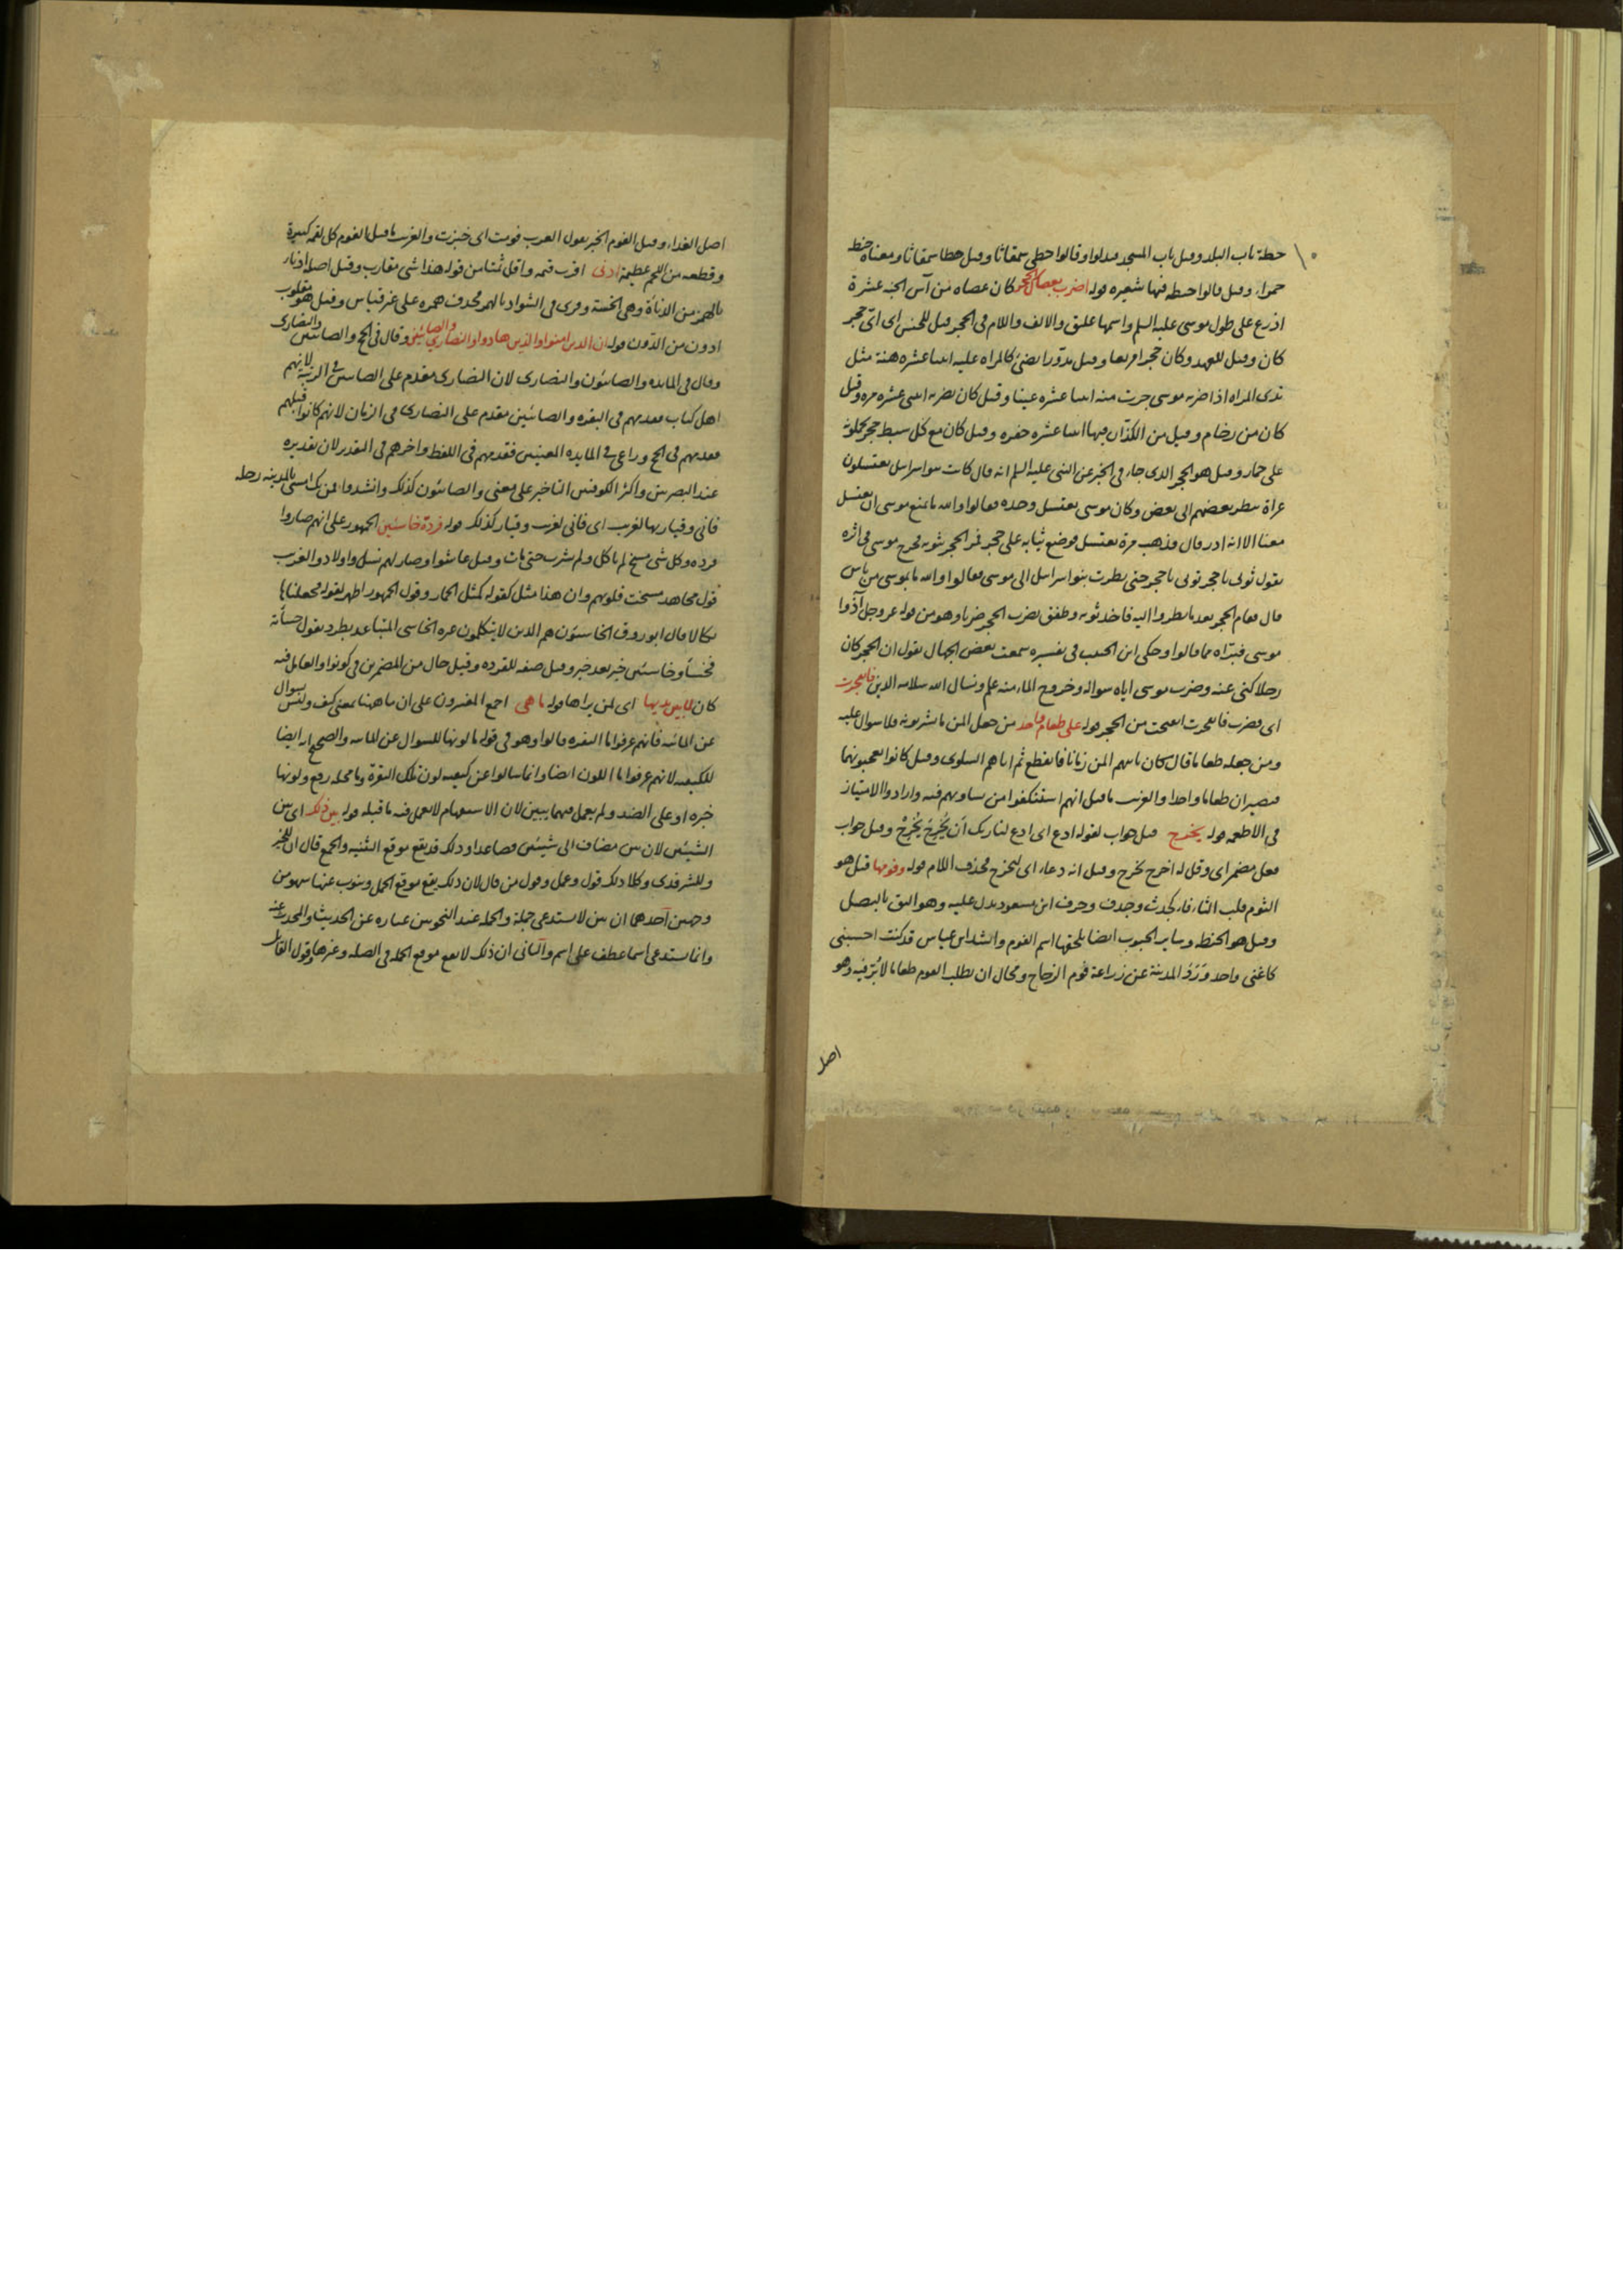 حطة باب البلد وقيل باب المسجد فبدلوا وقالوا حطى سمقاثا وقيل حطا سمقاثا ومعناه حنطة
حمراء وقيل قالوا حنطه فيها شعيره قوله اضرب بعصاك الحجر كان عصاه من آس الجنة عشرة
اذرع على طول موسى عليه السلم واسمها عليق والالف واللام فى الحجر قيل للجنس اى اى حجر
كان وقيل للعهد وكان حجرا مربعا وقيل مدورا يضئ كالمراه عليه اثنا عشره هنة مثل
ثدى المراه اذا ضربه موسى جرت منه اثنا عشره عينا وقيل كان يضربه اثنى عشره مره وقيل
كان من رخام وقيل من الكذان فيها اثنا عشره حفره وقيل كان مع كل سبط حجر يحملونه
على حمار وقيل هو الحجر الذى جاء فى الخبر عن النبى عليه السلم انه قال كانت بنو اسراىل يغتسلون
عراة ينظر بعضهم الى بعض وكان موسى يغتسل وحده فقالوا والله ما يمنع موسى ان يغتسل
معنا الا انه ادر قال فذهب مرة يغتسل فوضع ثيابه على حجر ففر الحجر بثوبه فخرج موسى فى اثره
يقول ثوبى يا حجر ثوبى يا حجر حتى نظرت بنو اسراىل الى موسى فقالوا والله ما بموسى من باس
قال فقام الحجر بعد ما نظروا اليه فاخذ ثوبه وطفق يضرب الحجر ضربا وهو من قوله عز وجل آذوا
موسى فبراه مما قالوا وحكى ابن الحبيب فى تفسيره سمعت بعض الجهال يقول ان الحجر كان
رجلا كنى عنه وضرب موسى اياه سواله وخروج الماء منه علم ونسال الله سلامه الدين فانفجرت
اى فضرب فانفجرت انفتحت من الحجر قوله على طعام واحد من جعل المن ما يشربونه فلا سوال عليه
ومن جعله طعاما قال كان ياتيهم المن زمانا فانقطع ثم اتاهم السلوى وقيل كانوا يعجنونهما
فيصيران طعاما واحدا والغريب ما قيل انهم استنكفوا من تساويهم فيه وارادوا الامتياز
فى الاطعمه قوله يخرج قيل جواب لقوله ادع اى ادع لنا ربك ان يخرج يخرج وقيل جواب
فعل مضمر اى وقل له اخرج يخرج وقيل انه دعاء اى ليخرج فحذف اللام قوله وفومها قيل هو
الثوم قلب الثاء فاء كجدث وجدف وحرف ابن مسعود يدل عليه وهو اليق بالبصل
وقيل هو الحنطه وساير الحبوب ايضا يلحقها اسم الفوم وانشد ابن عباس قد كنت احسبنى
كاغنى واحد ورد المدينة عن زراعة فوم الزجاج ومحال ان يطلب القوم طعاما لا بر فيه وهو
اصل
اصل الغذاء وقيل الفوم الخبز يقول العرب فومت اى خبزت والغريب ما قيل الفوم كل لقمة كبيرة
وقطعه من اللحم عظيمة ادنى اقرب قيمه واقل ثمنا من قوله هذا شى مقارب وقيل اصله ادنا
بالهمز من الدناة وهى الخسة وقرى فى الشواذ بالهمز فحذف همزه على غير قياس وقيل هو مقلوب
ادون من الدون قوله ان الذين امنوا والذين هادوا والنصارى والصابئين وقال فى الحج والصابئين والنصارى
وقال فى المايده والصابئون والنصارى لان النصارى مقدم على الصابئين فى الرتبة لانهم
اهل كتاب فقدمهم فى البقره والصابئين مقدم على النصارى فى الزمان لانهم كانوا قبلهم
فقدمهم فى الحج وراعى فى المايده المعنيين فقدمهم فى اللفظ واخرهم فى التقدير لان تقديره
عند البصريين واكثر الكوفيين التاخير على معنى والصابئون كذلك وانشدوا فمن يك امسى بالمدينه رحله
فانى وقيار بها لغريب اى فانى لغريب وقيار كذلك قوله قردة خاسئين الجمهور على انهم صاروا
قرده وكل شى مسخ لم ياكل ولم يشرب حتى مات وقيل عاشوا وصار لهم نسل واولاد والغريب
قول مجاهد مسخت قلوبهم وان هذا مثل كقوله كمثل الحمار وقول الجمهور اظهر لقوله فجعلناها
نكالا قال ابو روق الخاسئون هم الذين لا يتكلمون غيره الخاسى المتباعد بطرد يقول خسأته
فخسأ وخاسئين خبر بعد خبر وقيل صفه للقرده وقيل حال من المضمرين فى كونوا والعامل فيه
كان لما بين يديها اى لمن يراها قوله ما هى اجمع المفسرون على ان ما ههنا بمعنى كيف وليس بسوال
عن المائيه فانهم عرفوا ما البقره قالوا وهو فى قوله ما لونها للسوال عن المائيه والصحيح انه ايضا
للكيفيه لانهم عرفوا ما اللون ايضا وانما سالوا عن كيفيه لون تلك البقرة وما محله رفع ولونها
خبره او على الضد ولم يعمل فيهما يبين لان الاستفهام لا يعمل فيه ما قبله قوله بين ذلك اى بين
الشيئين لان بين مضاف الى شيئين فصاعدا وذلك قد يقع موقع التثنيه والجمع قال ان للخير
وللشر مدى وكلا ذلك قول وعمل وقول من قال لان ذلك يقع موقع الجمل وينوب عنها سهو من
وجهين احدهما ان بين لا يستدعى جملة والجمله عند النحويين عباره عن الحديث والمحدث عنه
وانما يستدعى اسما عطف على اسم والثانى ان ذلك لا يقع موقع الجمله فى الصله وغيرها وقول القائل